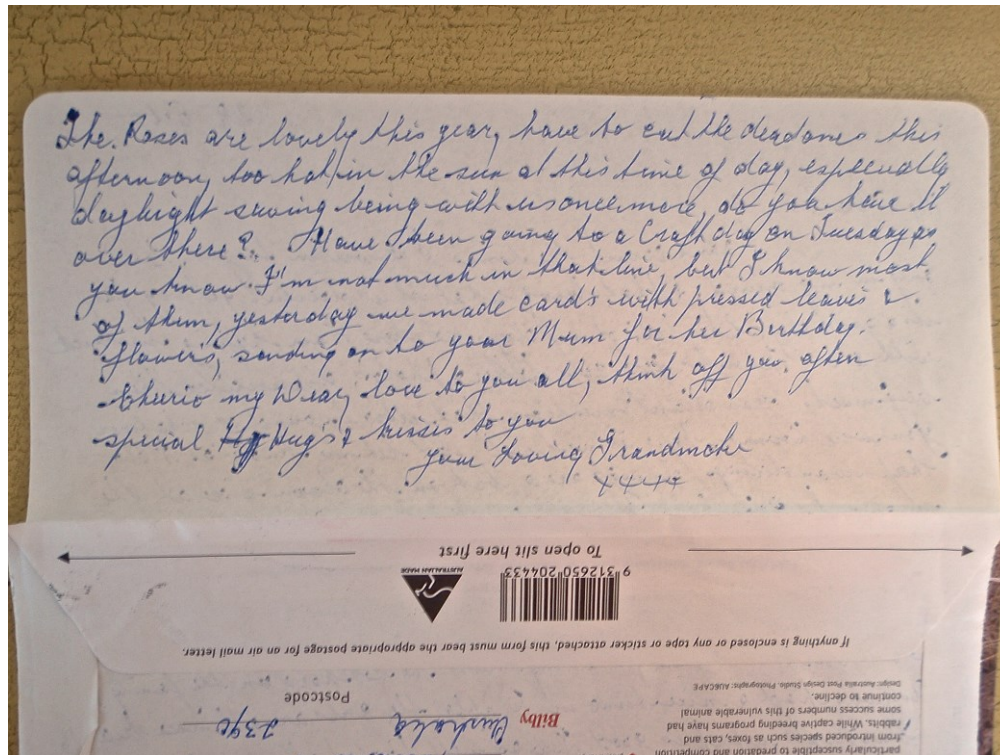 The Roses are lovely this year, have to cut the dead ones this
afternoon, too hot in the sun at this time of day, especially
daylight saving being with us once more, do you have it
over there?.. Have been going to a Craft day on Tuesday as
you know I'm not much in that line, but I know most
of them, yesterday we made card's with pressed leaves &
flowers, sending on to your Mum for her Birthday.
Cheerio my Dear, love to you all, think off you often
special Hugs & kisses to you
your Loving Grandmother
xxxx
To open slit here first
9 312650 204433
AUSTRALIAN MADE
If anything is enclosed or any tape or sticker attached, this form must bear the appropriate postage for an air mail letter.
Postcode
Australia 2340
Bilby
particularly susceptible to predation and competition
from introduced species such as foxes, cats and
rabbits. While captive breeding programs have had
some success numbers of this vulnerable animal
continue to decline.
Design: Australia Post Design Studio. Photography: AUSCAPE